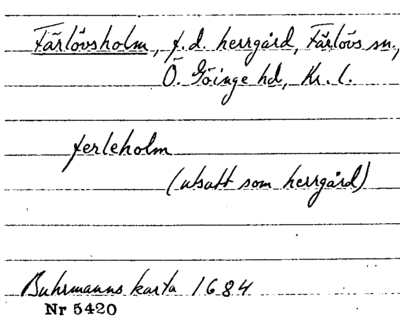 Färlövsholm, f.d. herrgård, Färlövs sn.,
Ö. Göinge hd, Kr. l.
ferleholm
(utsatt som herrgård)
Buhrmanns karta 1684
Nr 5420